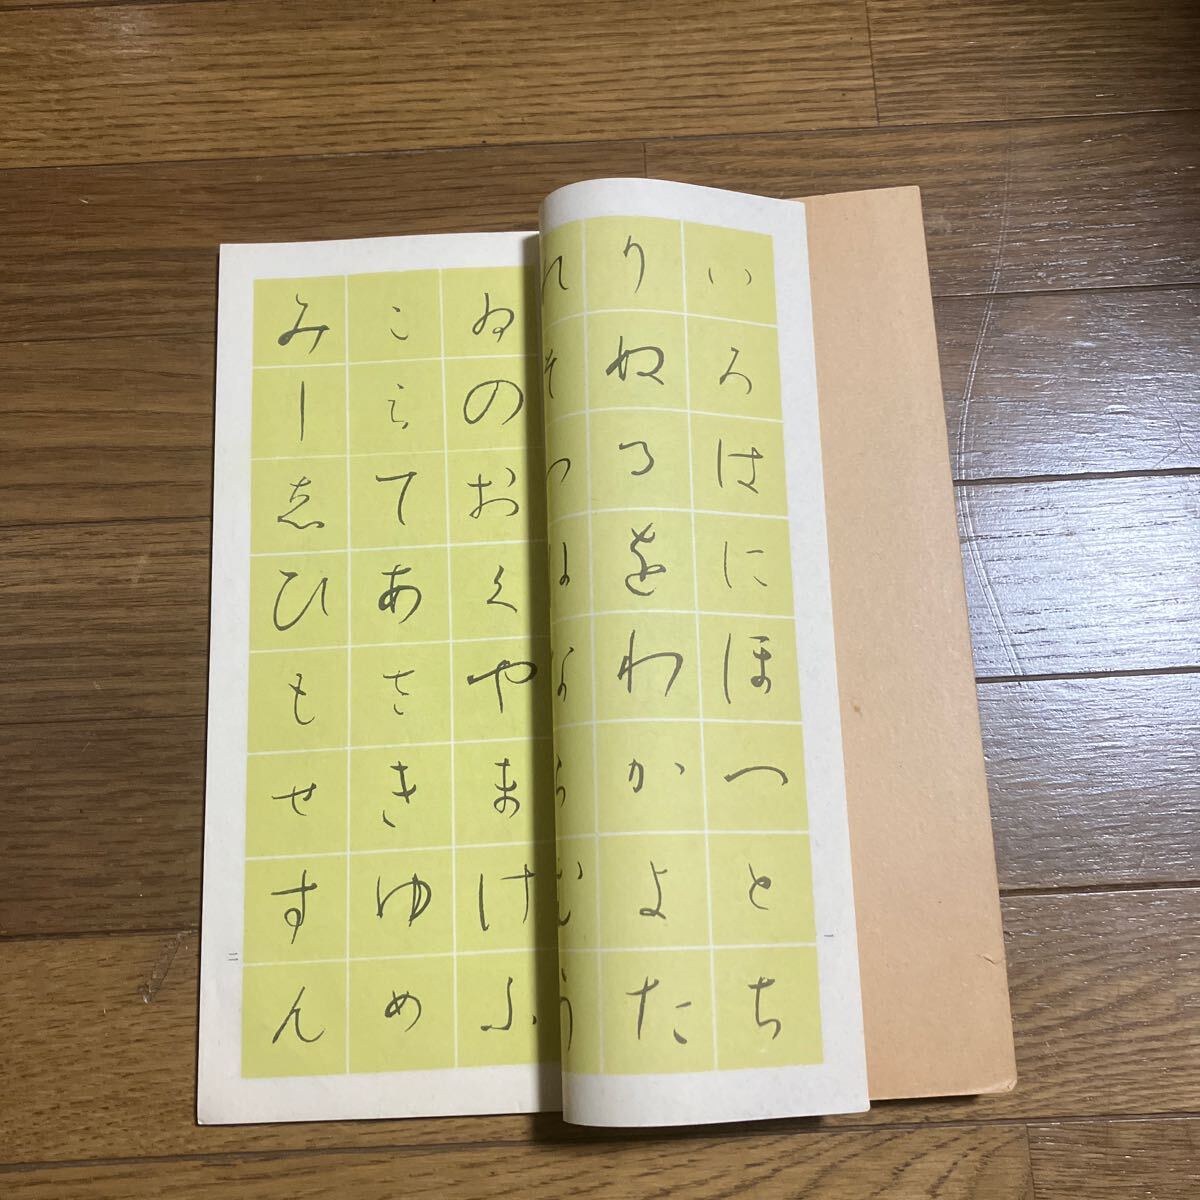 いろはにほへとち
りぬるをわかよた
れそつねならむう
一
ゐのおくやまけふ
こえてあさきゆめ
みしゑひもせすん